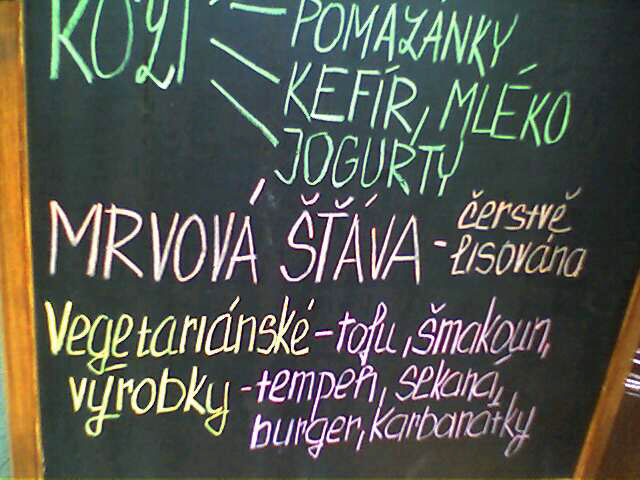 KOZÍ
POMAZÁNKY
KEFÍR, MLÉKO
JOGURTY
MRVOVÁ ŠŤÁVA - čerstvě
lisována
Vegetariánské - tofu, šmakoun,
výrobky - tempeh, sekaná,
burger, karbanátky